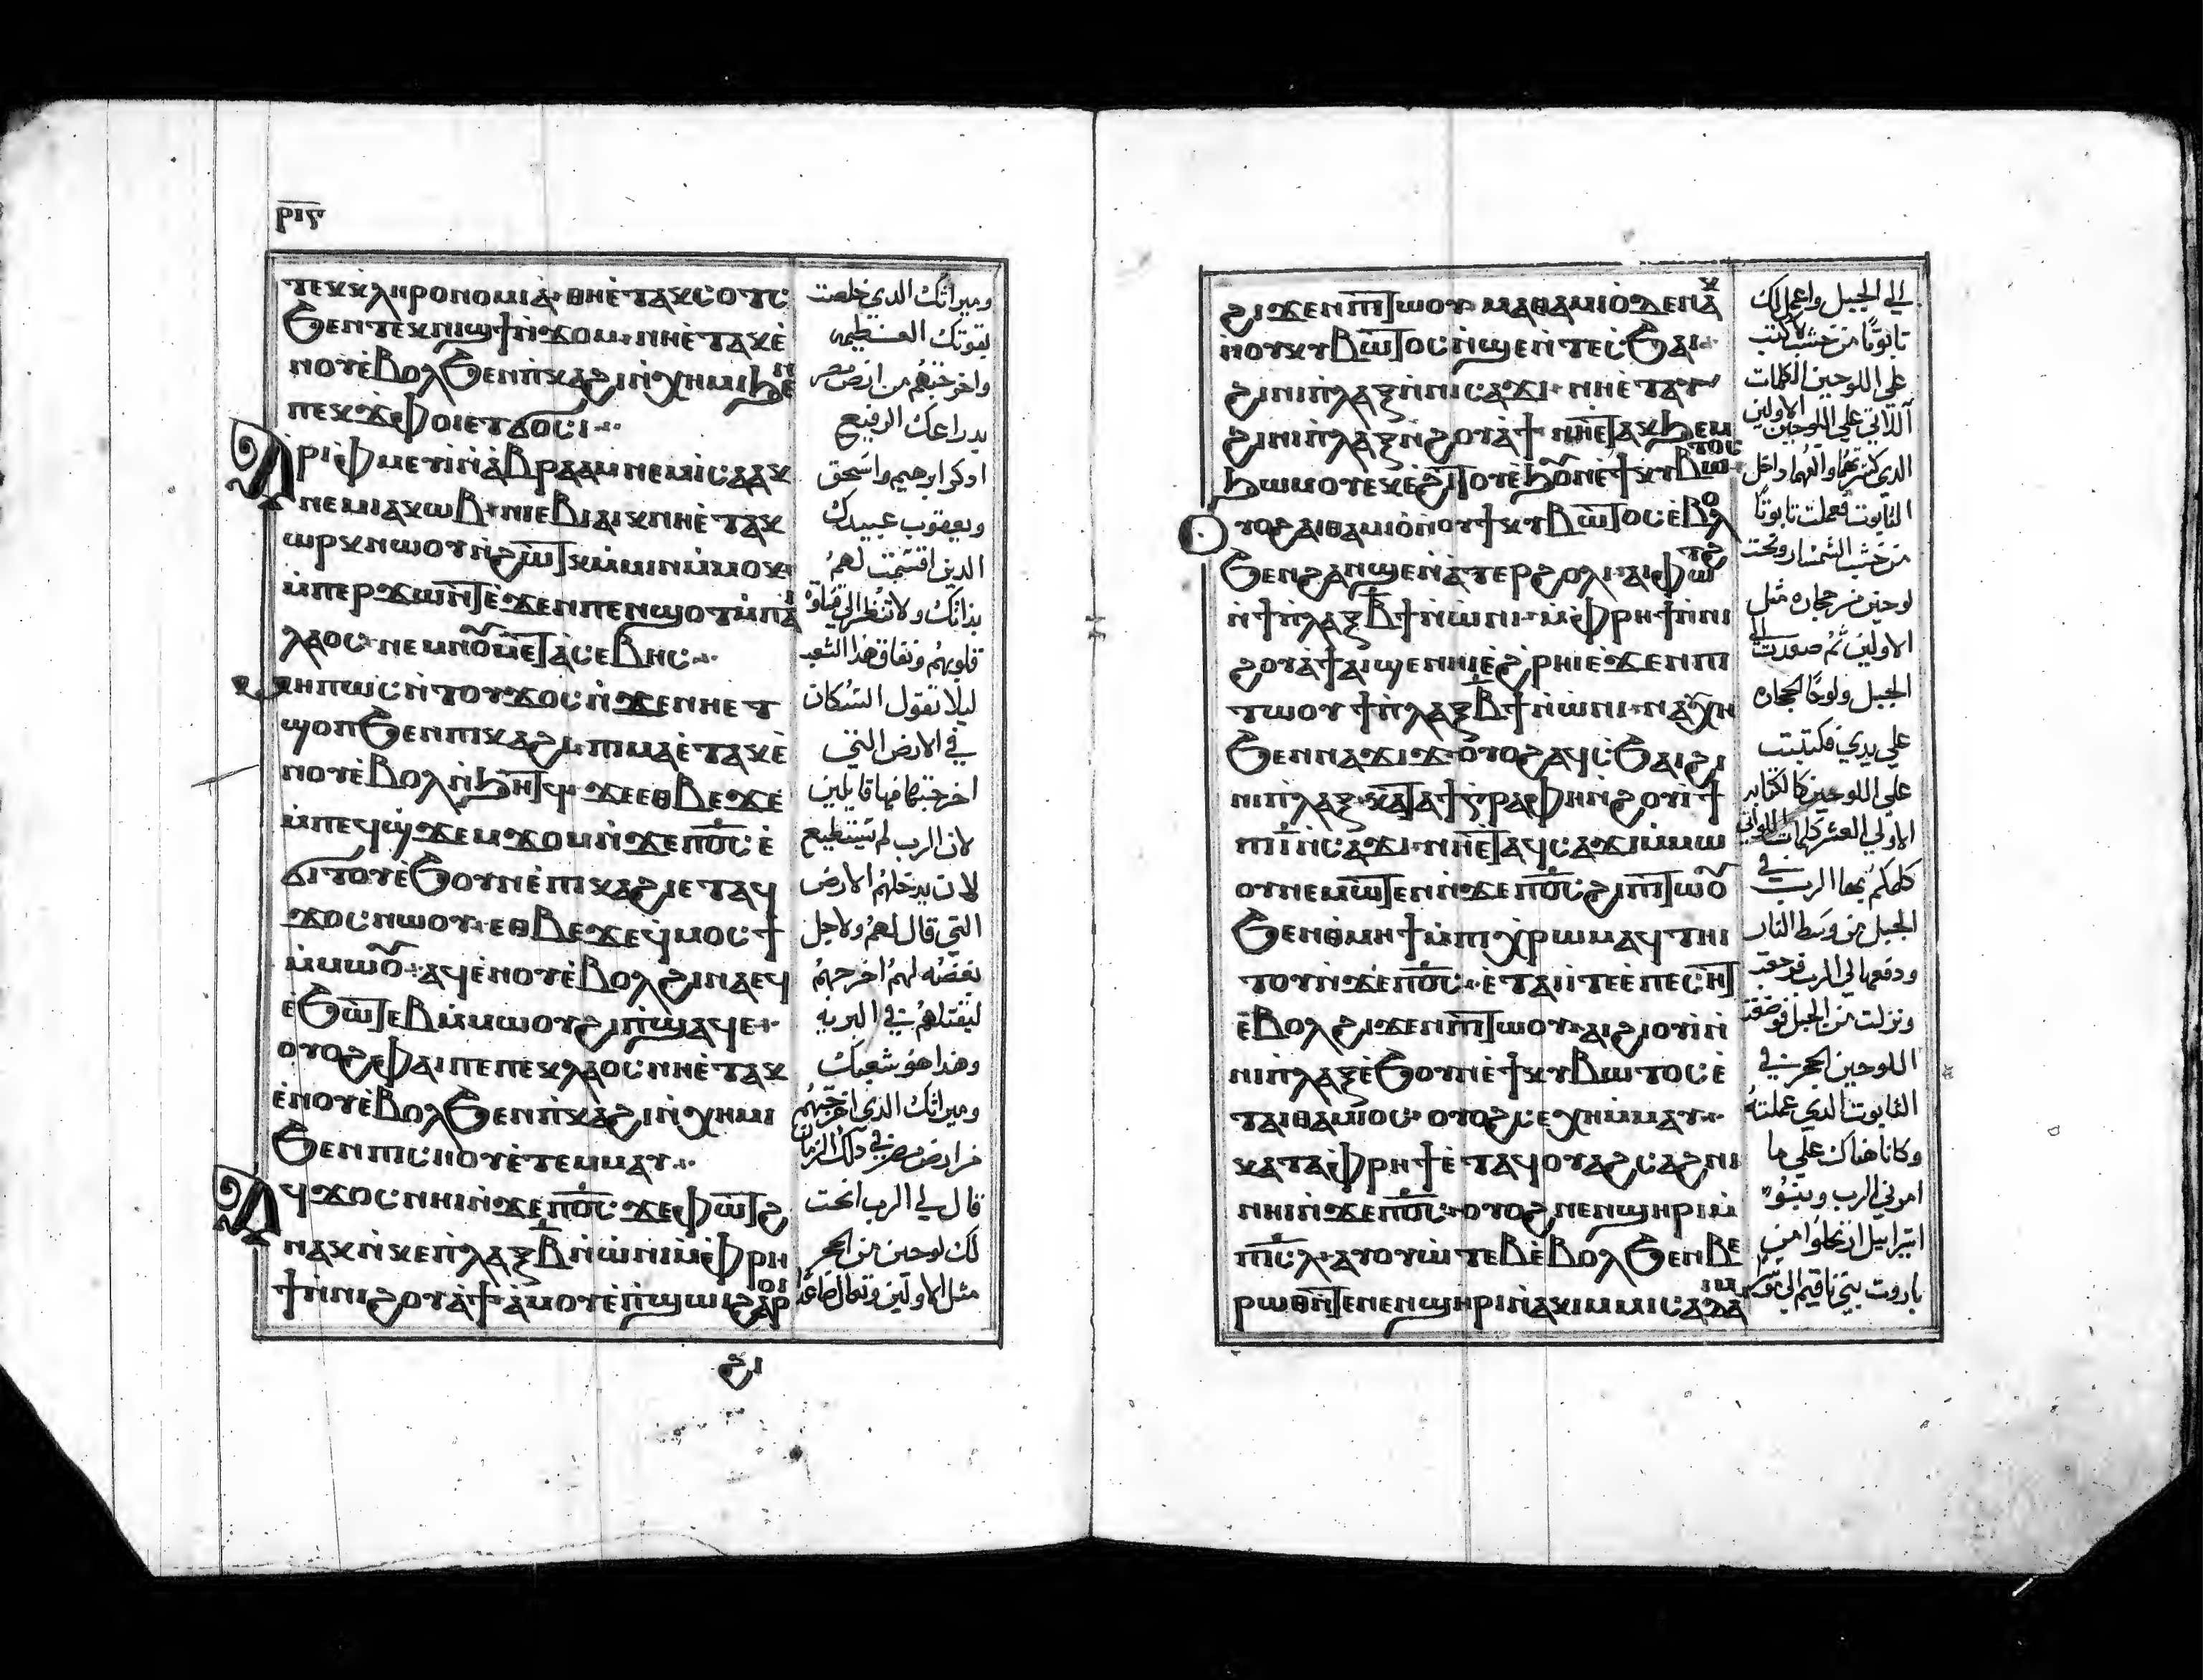 ⲣⲓⲋ
ⲧⲉⲕⲕⲗⲏⲣⲟⲛⲟⲙⲓⲁ̀· ⲑⲏⲉ̀ⲧⲁⲕⲥⲟⲧⲥ
ϧⲉⲛⲧⲉⲕⲛⲓϣϯⲛ̀ϫⲟⲙ· ⲛⲏⲉ̀ⲧⲁⲕⲉ̀
ⲛⲟⲩⲉ̀ⲃⲟⲗϧⲉⲛⲡ̀ⲕⲁϩⲓⲛ̀ⲭⲏⲙⲓϧⲉⲛ
ⲡⲉⲕϫ̀ⲫⲟⲓⲉⲧϭⲟⲥⲓ
ⲁⲣⲓⲫ̀ⲙⲉⲩⲓ̀ⲛ̀ⲁ̀ⲃⲣⲁⲁⲙⲛⲉⲙⲓⲥⲁⲁⲕ
ⲛⲉⲙⲓⲁⲕⲱⲃ· ⲛⲓⲉⲃⲓⲁⲓⲕⲛⲏⲉ̀ⲧⲁⲕ
ⲱⲣⲕⲛⲱⲟⲩⲛ̀ϩⲱ̅ⲧⲕⲙ̀ⲙⲓⲛⲙ̀ⲙⲟⲕ
ⲙ̀ⲡⲉⲣϫⲱⲛ̅ⲧⲉ̀ϫⲉⲛⲡⲉⲛϣⲟⲧⲙ̀ⲡⲁⲓ
ⲗⲁⲟⲥ· ⲛⲉⲙⲛⲟⲩⲙⲉ̅ⲧⲁ̀ⲥⲉⲃⲏⲥ
ⲙⲏⲡⲱⲥⲛ̀ⲧⲟⲩϫⲟⲥⲛ̀ϫⲉⲛⲏⲉⲧ
ϣⲟⲡϧⲉⲛⲡⲓⲕⲁϩⲓ· ⲡⲓⲙⲁⲉ̀ⲧⲁⲕⲉ̀
ⲛⲟⲩⲉ̀ⲃⲟⲗⲛ̀ϧⲏ̅ⲧϥ· ϫⲉⲉⲑⲃⲉϫⲉ
ⲙ̀ⲡⲉϥϣ̀ϫⲉⲙϫⲟⲙⲛ̀ϫⲉⲡⲟ̅ⲥ̅ⲉ̀
ϭⲓⲧⲟⲩⲉϧⲟⲩⲛⲉ̀ⲡⲓⲕⲁϩⲓⲉⲧⲁϥ
ϫⲟⲥⲛⲱⲟⲩ· ⲉⲑⲃⲉϫⲉϥⲙⲟⲥϯ
ⲙ̀ⲙⲱⲟⲩ· ⲁϥⲉ̀ⲛⲟⲩⲉ̀ⲃⲟⲗϩⲓⲛⲁⲉϥ
ⲉϧⲱ̅ⲧⲉⲃⲙ̀ⲙⲱⲟⲩϩⲓⲡ̀ϣⲁϥⲉ·
ⲟⲩⲟϩⲫⲁⲓⲡⲉⲡⲉⲕⲗⲁⲟⲥⲛⲏⲉ̀ⲧⲁⲕ
ⲉ̀ⲛⲟⲩⲉ̀ⲃⲟⲗϧⲉⲛⲡ̀ⲕⲁϩⲓⲛ̀ⲭⲏⲙⲓ
ϧⲉⲛⲡⲓⲥⲏⲟⲩⲉ̀ⲧⲉⲙⲙⲁⲩ
ⲁϥϫⲟⲥⲛⲏⲓⲛ̀ϫⲉⲡⲟ̅ⲥ̅ ϫⲉⲫⲱ̅ⲧϩ
ⲛⲁⲕⲛ̀ⲕⲉⲡ̀ⲗⲁⲝⲃ̅ⲛ̀ⲱ̀ⲛⲓⲙ̀ⲫ̀ⲣⲏ
ϯⲛ̀ⲛⲓϩⲟⲩⲁ̀ϯ· ⲁ̀ⲙⲟⲩⲉ̀ⲡ̀ϣⲱⲓϩⲁⲣⲟⲓ
ϩⲓ
ومیراثك الدي خلصت
بقوتك العظیمه
واخرجتهم من ارض مصر
بدراعك الرفیع
ادكر ابرهیم واسحق
ویعقوب عبیدك
الدین اقسمت لهم
بذاتك ولا تنظر الي قساوة
قلوبهم ونفاق هذا الشعب
لیلا تقول السكان
في الارض التي
اخرجتنا منها قایلین
لان الرب لم یستطیع
لان یدخلهم الارض
التي قال لهم ولاجل
بغضته لهم اخرجهم
لیقتلهم في البریه
وهدا هو شعبك
ومیراثك الذي اخرجتهم
من ارض مصر في دلك الزمان
قال لي الرب انحت
لك لوحین من الحجر
مثل الاولین وتعال صاعدا
ϩⲓϫⲉⲛⲡⲓ̅ⲧⲱⲟⲩ· ⲙⲁⲑⲁⲙⲓⲟ̀ϫⲉⲛⲁⲕ
ⲛ̀ⲟⲩⲕⲩⲃⲱ̅ⲧⲟⲥⲛ̀ϣⲉⲛ̀ⲧⲉⲥϧⲁⲓ
ϩⲓⲛⲓⲡ̀ⲗⲁⲝⲛ̀ⲛⲓⲥⲁϫⲓ· ⲛⲏⲉ̀ⲧⲁⲩ
ϩⲓⲛⲓⲡ̀ⲗⲁⲝⲛ̀ϩⲟⲩⲁ̀ϯ ⲛⲏⲉ̅ⲧⲁⲕϧⲉⲙ
ϧⲱⲙⲟⲩⲉⲕⲉ̀ϩⲓ̅ⲧⲟⲩⲉ̀ϧⲟⲩⲛⲉ̀ϯⲕⲩⲃⲱⲧⲟⲥ
ⲟⲩⲟϩⲁⲓⲑⲁⲙⲓⲟ̀ⲛ̀ⲟⲩϯⲕⲩⲃⲱ̅ⲧⲟⲥⲉ̀ⲃⲟⲗ
ϧⲉⲛϩⲁⲛϣⲉⲛ̀ⲁ̀ⲧⲉⲣϩⲟⲗⲓ· ⲁⲓⲫⲱⲧϩ
ⲛ̀ϯⲡ̀ⲗⲁⲝⲃ̅ϯⲛ̀ⲱ̀ⲛⲓ· ⲙ̀ⲫ̀ⲣⲏϯⲛ̀ⲛⲓ
ϩⲟⲩⲁ̀ϯⲁⲓϣⲉⲛⲏⲓⲉ̀ϩ̀ⲣⲏⲓⲉ̀ϫⲉⲛⲡⲓ
ⲧⲱⲟⲩ ϯⲡ̀ⲗⲁⲝⲃ̅ϯⲛ̀ⲱ̀ⲛⲓ· ⲛⲁⲭⲏ
ϧⲉⲛⲛⲁϫⲓϫ· ⲟ̀ⲩⲟϩⲁϥⲥ̀ϧⲁⲓϩⲓ
ⲛⲓⲡ̀ⲗⲁⲝ· ⲕⲁ̅ⲧⲁϯⲅⲣⲁⲫⲏⲛ̀ϩⲟⲩⲓϯ
ⲡⲓⲓ̅ⲛ̀ⲥⲁϫⲓ· ⲛⲏⲉ̅ⲧⲁϥⲥⲁϫⲓⲙ̀ⲙⲱ
ⲟⲩⲛⲉⲙⲱ̅ⲧⲉⲛⲛ̀ϫⲉⲡⲟ̅ⲥ̅ϩⲓⲡⲓ̅ⲧⲱⲟⲩ
ϧⲉⲛⲑ̀ⲙⲏϯⲙ̀ⲡⲓⲭ̀ⲣⲱⲙⲁϥⲧⲏⲓ
ⲧⲟⲩⲛ̀ϫⲉⲡⲟ̅ⲥ̅· ⲉ̀ⲧⲁⲓⲓ̀ⲧⲉⲉⲡⲉⲥⲏ̅ⲧ
ⲉ̀ⲃⲟⲗϩⲓϫⲉⲛⲡⲓ̅ⲧⲱⲟⲩ· ⲁⲓϩⲓⲟⲩⲓ̀ⲛ̀
ⲛⲓⲡ̀ⲗⲁⲝⲉ̀ϧⲟⲩⲛⲉ̀ϯⲕⲩⲃⲱⲧⲟⲥⲉ̀
ⲧⲁⲓⲑⲁⲙⲓⲟⲥ· ⲟⲩⲟϩⲥⲉⲭⲏⲙ̀ⲙⲁⲩ
ⲕⲁⲧⲁⲫ̀ⲣⲏϯⲉ̀ⲧⲁϥⲟⲩⲁϩⲥⲁϩⲛⲓ
ⲛⲏⲓⲛ̀ϫⲉⲡⲟ̅ⲥ̅· ⲟⲩⲟϩⲛⲉⲛϣⲏⲣⲓⲙ̀
ⲡⲓⲥ̅ⲗ̅· ⲁⲩⲟⲩⲱ̀ⲧⲉⲃⲉ̀ⲃⲟⲗϧⲉⲛⲃⲉ
ⲣⲱⲑⲛ̅ⲧⲉⲛⲉⲛϣⲏⲣⲓⲛ̀ⲁⲕⲓⲙⲙⲓⲥⲁⲇⲁⲓⲙ
الي الجبل واعمل لك
تابوتا من خشب لاكتب
علي اللوحین الكلمات
اللاتي علي اللوحین الاولین
الذي كسرتهما والقهما داخل
التابوت فعملت تابوتا
من خشب الشمشار ونحت
لوحین من حجاره مثل
الاولین ثم صعدت الي
الجبل ولوحا الحجاره
علي یدي فكتبت
علي اللوحین كالكتابه
الاولي العشر كلمات اللواتي
كلمكم بها الرب في
الجبل من وسط النار
ودفعها لي الرب فرجعت
ونزلت من الجبل فوضعت
اللوحین الحجر في
التابوت الدي عملته
وكانا هناك علي ما
امرني الرب وبنو
اسرایيل ارتحلوا من
باروت بني ناقیم الي